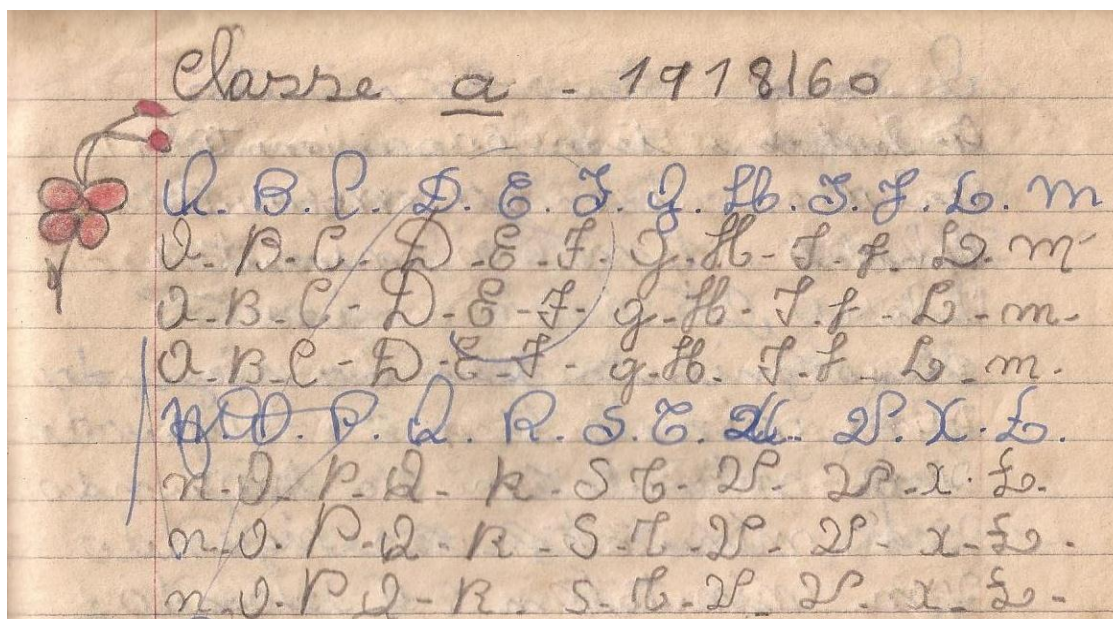 Classe a - 1918160
A. B. C. D. E. F. G. H. I. J. L. M
A. B. C. D. E. F. G. H. I. J. L. M
A. B. C - D. E - F. g. H. I. J - L - m.
A. B. C - D. E. F - g. H. I. J - L - m.
N. O. P. Q. R. S. T. U. V. X. Z.
n. O. P. Q. R. S T. U. V. X. Z.
n. O. P. Q - R - S. T. U - V - X - Z.
n. O. P Q - R. S. T. U. V. X - Z -